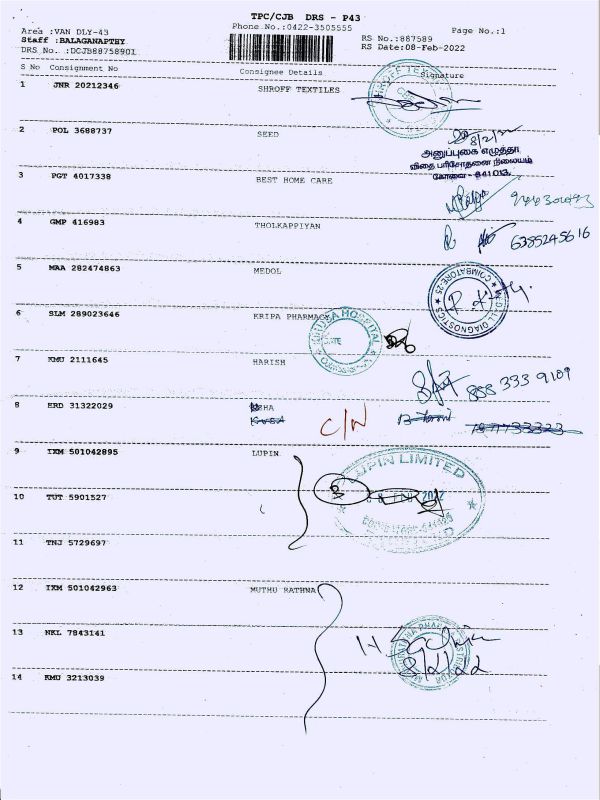 TPC/CJB DRS - P43
Area :VAN DLY-43
Phone No.:0422-3505555
Page No.:1
Staff :BALAGANAPTHY
RS No.:887589
DRS No. :DCJB88758901
RS Date:08-Feb-2022
S No Consignment No Consignee Details Signature
1 JNR 20212346 SHROFF TEXTILES
2 POL 3688737 SEED
8/2/22
அனுப்புகை எழுத்தர்
விதை பரிசோதனை நிலையம்
கோவை - 641013.
3 PGT 4017338 BEST HOME CARE
4 GMP 416983 THOLKAPPIYAN
6385245616
5 MAA 282474863 MEDOL
COIMBATORE-25
DIAGNOSTICS
6 SLM 289023646 KRIPA PHARMACY
HOSPITAL
7 KMU 2111645 HARISH
888 333 9109
8 ERD 31322029
C/N
9 IXM 501042895 LUPIN
LUPIN LIMITED
10 TUT 5901527
2022
11 TNJ 5729697
12 IXM 501042963 MUTHU RATHNA
13 NKL 7843141
14 KMU 3213039